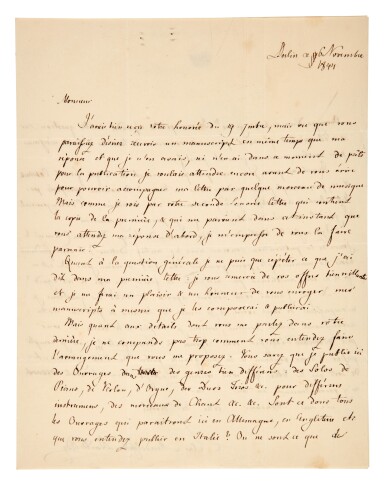 Berlin 26 Novembre
1844
Monsieur
J'avais bien reçu votre honorée du 19 mais vu que vous
paraissiez désirer recevoir un manuscript en même temps que ma
réponse et que je n'en avais, ni n'en ai dans ce moment de prêt
pour la publication, je voulais attendre encore avant de vous écrire
pour pouvoir accompagner ma lettre par quelque morceau de musique
Mais comme je vois par votre seconde lettre qui contient
la copie de la première, & qui me parvient dans cet instant que
vous attendez ma réponse d'abord, je m'empresse de vous la faire
parvenir.
Quant à la question générale je ne puis que répéter ce que j'ai
dit dans ma première lettre je vous remercie de vos offres bienveillantes
et je me ferai un plaisir & un honneur de vous envoyer mes
manuscripts à mesure que je les composerai & publierai.
Mais quant aux détails dont vous me parlez dans votre
dernière, je ne comprends pas trop comment vous entendez faire
l'arrangement que vous me proposez. Vous savez que je publie ici
des Ouvrages dans des genres bien différens, des Solos de
Piano, de Violon, d'Orgue, des Duos Trios &c. pour différens
instrumens, des morceaux de Chant &c. &c. Sont ce donc tous
les Ouvrages qui paraitront ici en Allemagne, en Angleterre etc
que vous entendez publier en Italie? Ou ne sont ce que de